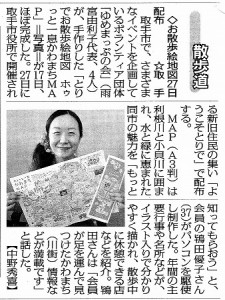 散歩道
◇お散歩絵地図27日
配布　◇取　手
取手市で、さまざま
なイベントを企画して
いるボランティア団体
「ゆめまっぷの会」（雨
富由利子代表、4人）
が、手作りした「とり
でお散歩絵地図　ホッ
と一息かわまちＭＡ
Ｐ」＝写真＝が17日、
ほぼ完成した。27日に
取手市役所で開催され
る新旧住民の集い「よ
うこそとりで」で配布
する。
ＭＡＰ（Ａ3判）は
利根川と小貝川に囲ま
れ、水と緑に恵まれた
同市の魅力を「もっと
知ってもらおう」と、
会員の鴇田優子さん
がパソコンを駆使
し制作した。年間の主
要行事や名所などが、
イラスト入りで分かり
やすく描かれ、散歩中
に休憩できる店
などを紹介。鴇
田さんは「会員
が足を運んで見
つけたかわまち
（川街）情報な
どが満載です」
と話した。
【中野秀喜】